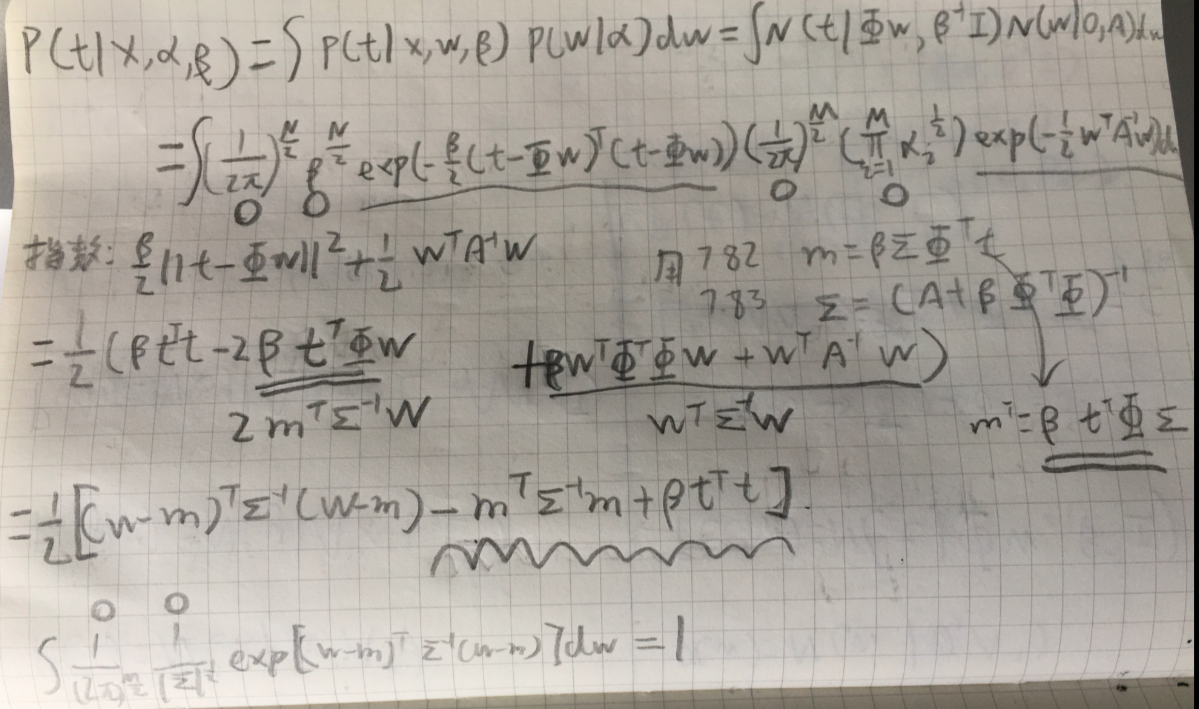 P(t|X,α,β) = ∫ P(t|x,w,β) P(w|α)dw = ∫N(t|Φw, β⁻¹I)N(w|0,A)dw
= ∫(1/2π)^(N/2) β^(N/2) exp(-β/2(t-Φw)ᵀ(t-Φw)) (1/2π)^(M/2) (∏_(i=1)^M αᵢ^(1/2)) exp(-1/2 wᵀA⁻¹w)d
指数: β/2||t-Φw||² + 1/2 wᵀA⁻¹w
用 7.82 m = βΣΦᵀt
7.83 Σ = (A+βΦᵀΦ)⁻¹
= 1/2 (βtᵀt - 2βtᵀΦw + βwᵀΦᵀΦw + wᵀA⁻¹w)
2mᵀΣ⁻¹w wᵀΣ⁻¹w mᵀ = βtᵀΦΣ
= 1/2 [(w-m)ᵀΣ⁻¹(w-m) - mᵀΣ⁻¹m + βtᵀt].
∫ 1/(2π)^(M/2) 1/|Σ|^(1/2) exp[(w-m)ᵀΣ⁻¹(w-m)]dw = 1